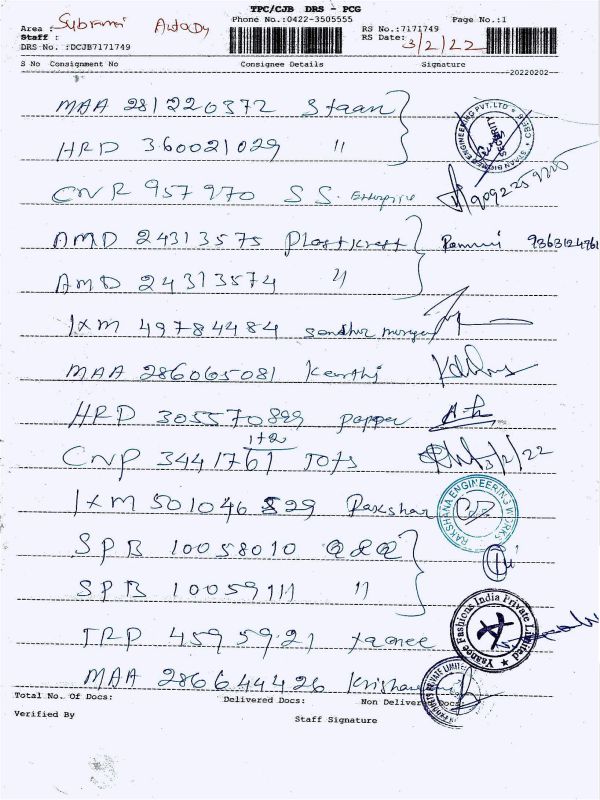 TPC/CJB DRS - PCG
Phone No.:0422-3505555 Page No.:1
Area : Subrami
Staff :
RS No.:7171749
DRS No. :DCJB7171749 RS Date: 3/2/22
S No Consignment No Consignee Details Signature
20220202
MAA 281220372 Staan
HRD 360021029 "
CNR 957970 S S. Enterprise
AMD 24313575 Plastkrest 9363124761
AMD 24313574 "
IXM 49784484
MAA 286065081 Keerthi
HRD 305570899 papper
1+2
CNP 3441761 Tots 3/2/22
IXM 501046829 Rakshana RAKSHANA ENGINEERING WORKS
SPB 10058010 Q&Q
SPB 10059111 "
TRP 4595921 Yaanee Yaanee Fashions India Private Limited
MAA 286644426
Total No. Of Docs: Delivered Docs: Non Delivered Docs:
Verified By Staff Signature